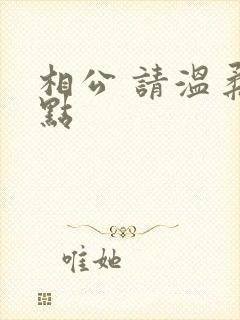 相公 請溫柔
點
唯她